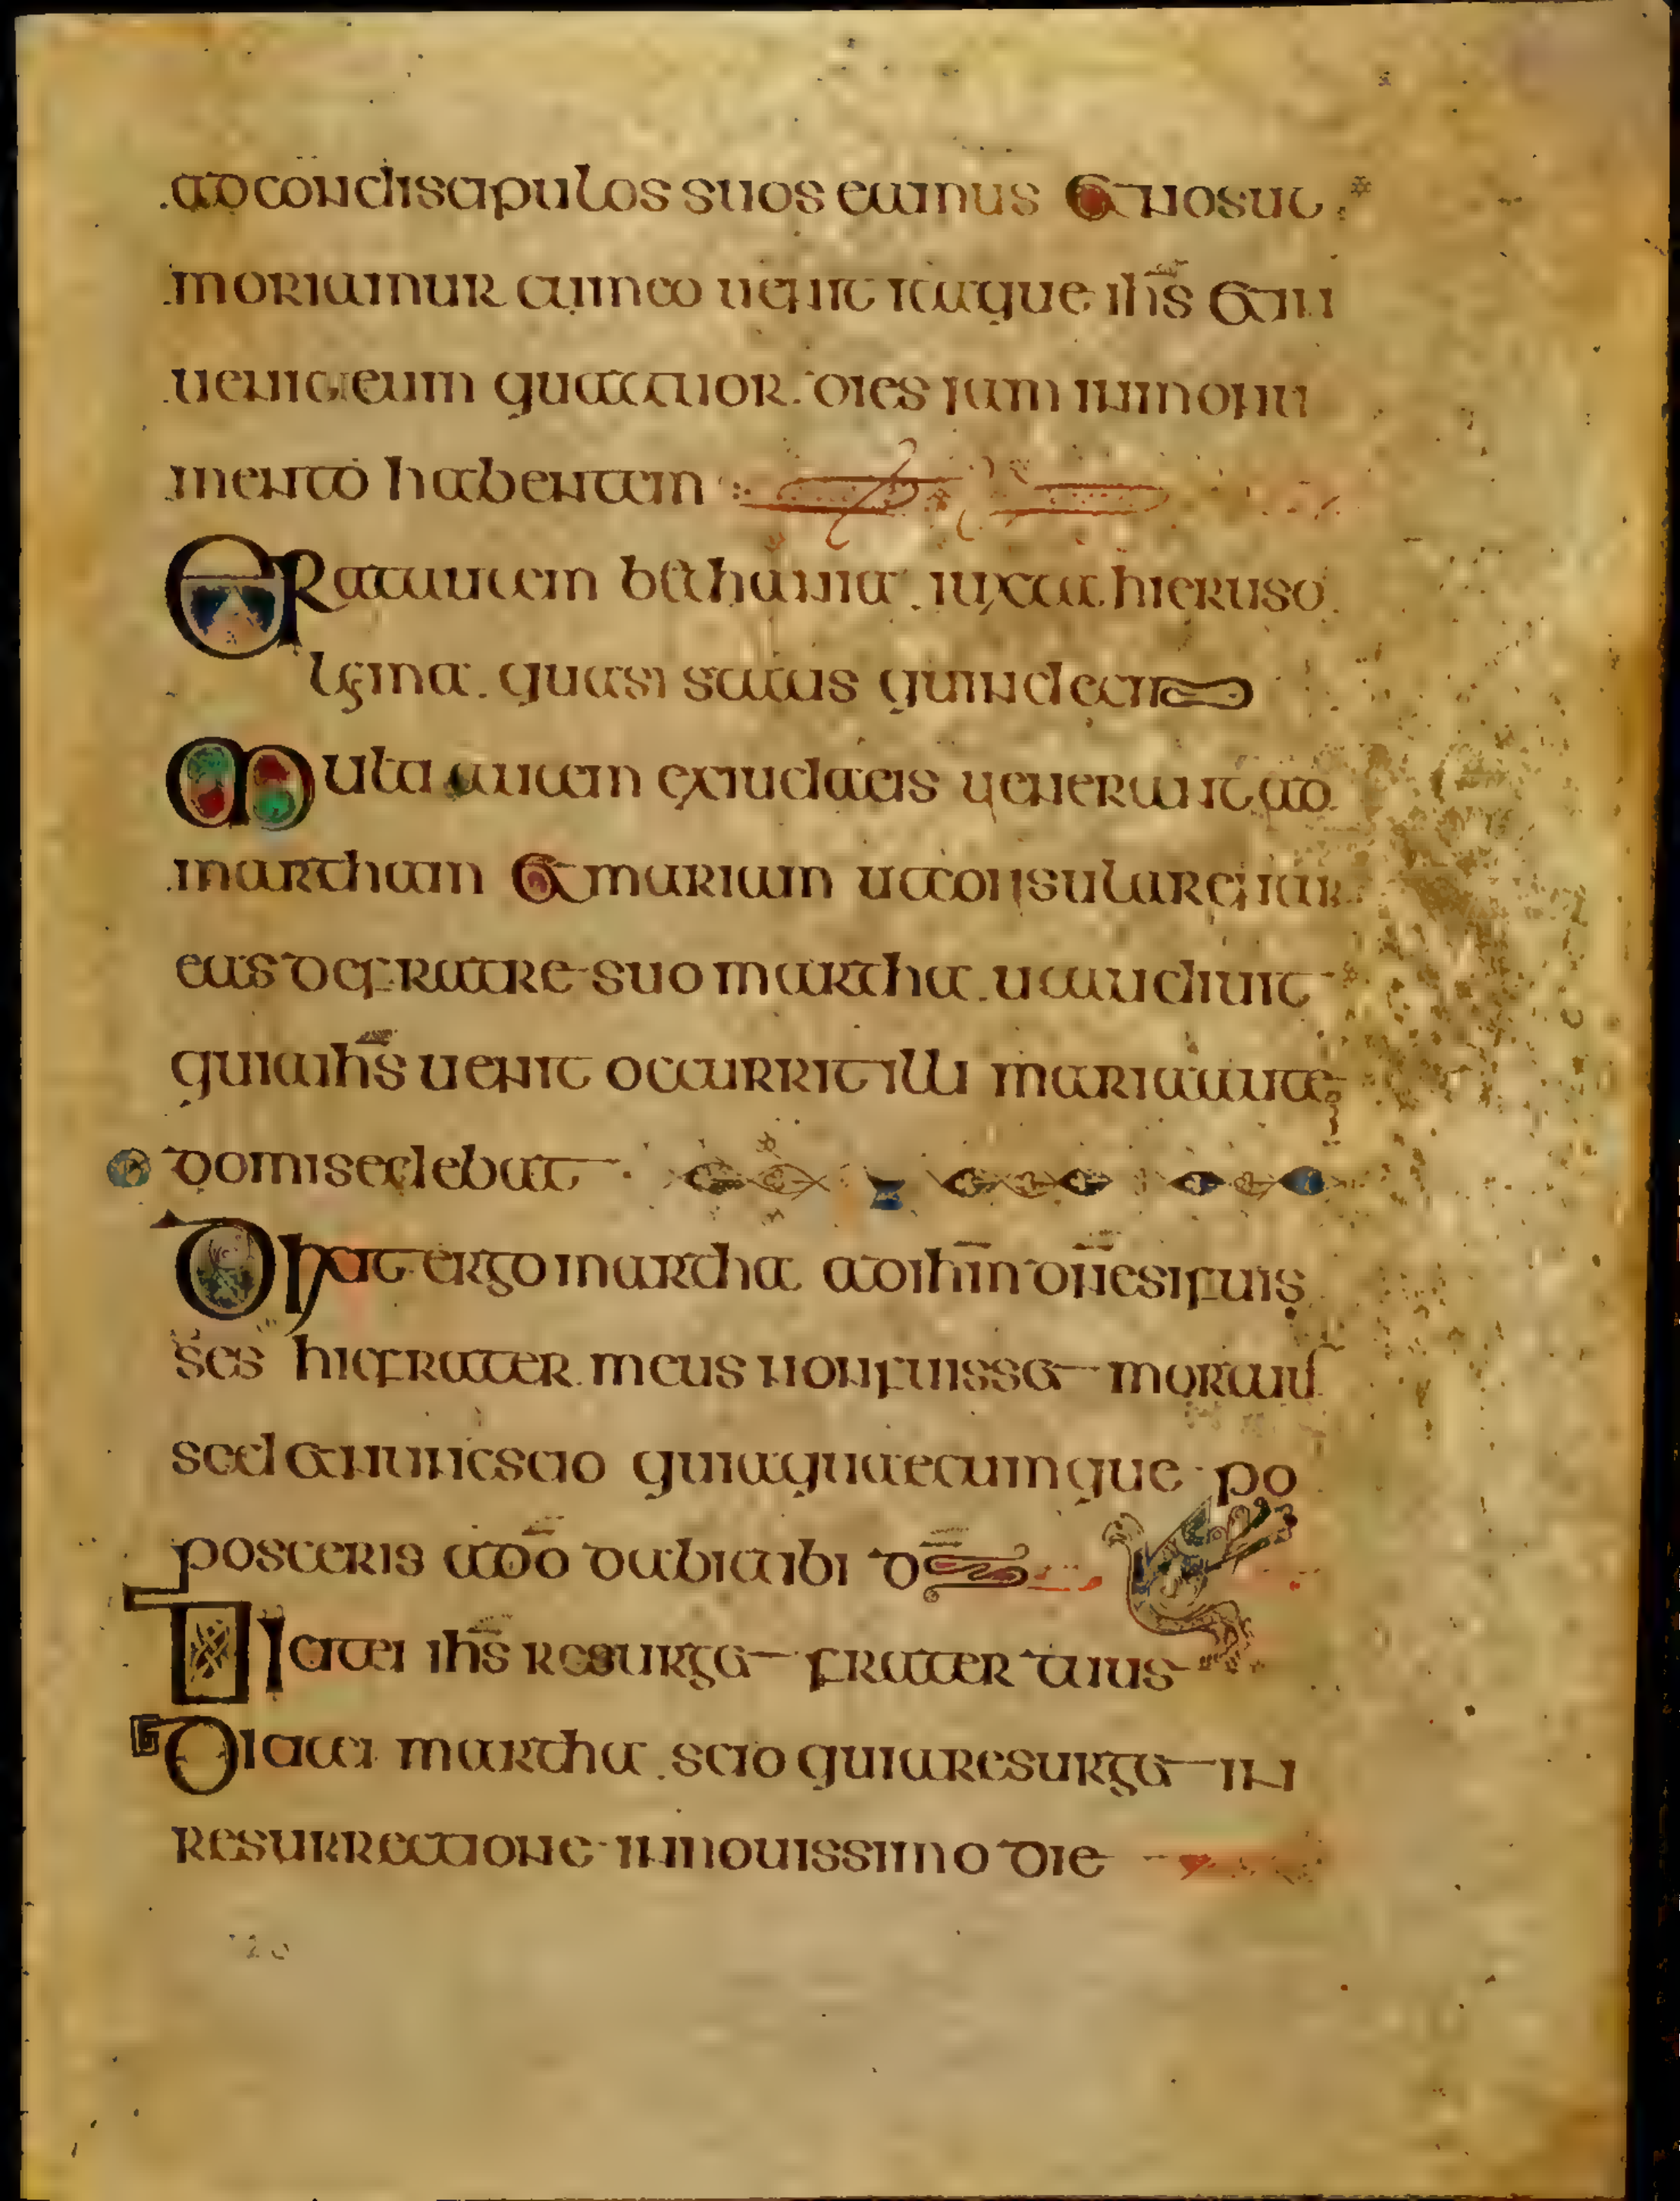 ad condiscipulos suos eamus et nosut
moriamur cum eo uenit itaque ihs et in
uenit eum quattuor dies iam in monu
mento habentem
Erat autem bethania iuxta hieruso
lyma quasi statis quindecim
Multi autem ex iudaeis uenerunt ad
martham et mariam ut consularentur
eas de fratre suo martha ut audiuit
quia ihs uenit occurrit illi maria aute
domi sedebat
Dixit ergo martha ad ihm dne si fuis
ses hic frater meus non fuisset mortuus
sed et nunc scio quia quaecumque po
posceris a do dabit tibi ds
Dicit ei ihs resurget frater tuus
Dicit ei martha scio quia resurget in
resurrectione in nouissimo die